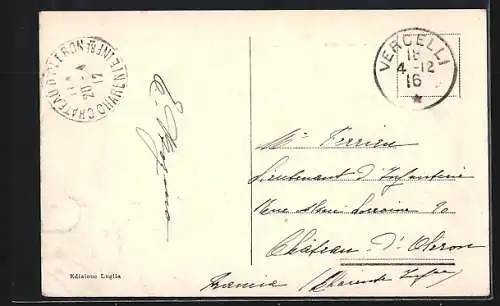 CHATEAU D'OLERON
CHARENTE INFRE
20
17
VERCELLI
18
4-12
16
Mr Ferrier
Lieutenant d'Infanterie
Rue Alsace Lorraine 20
Château d'Oleron
(Charente Infre)
Edizione Luglia